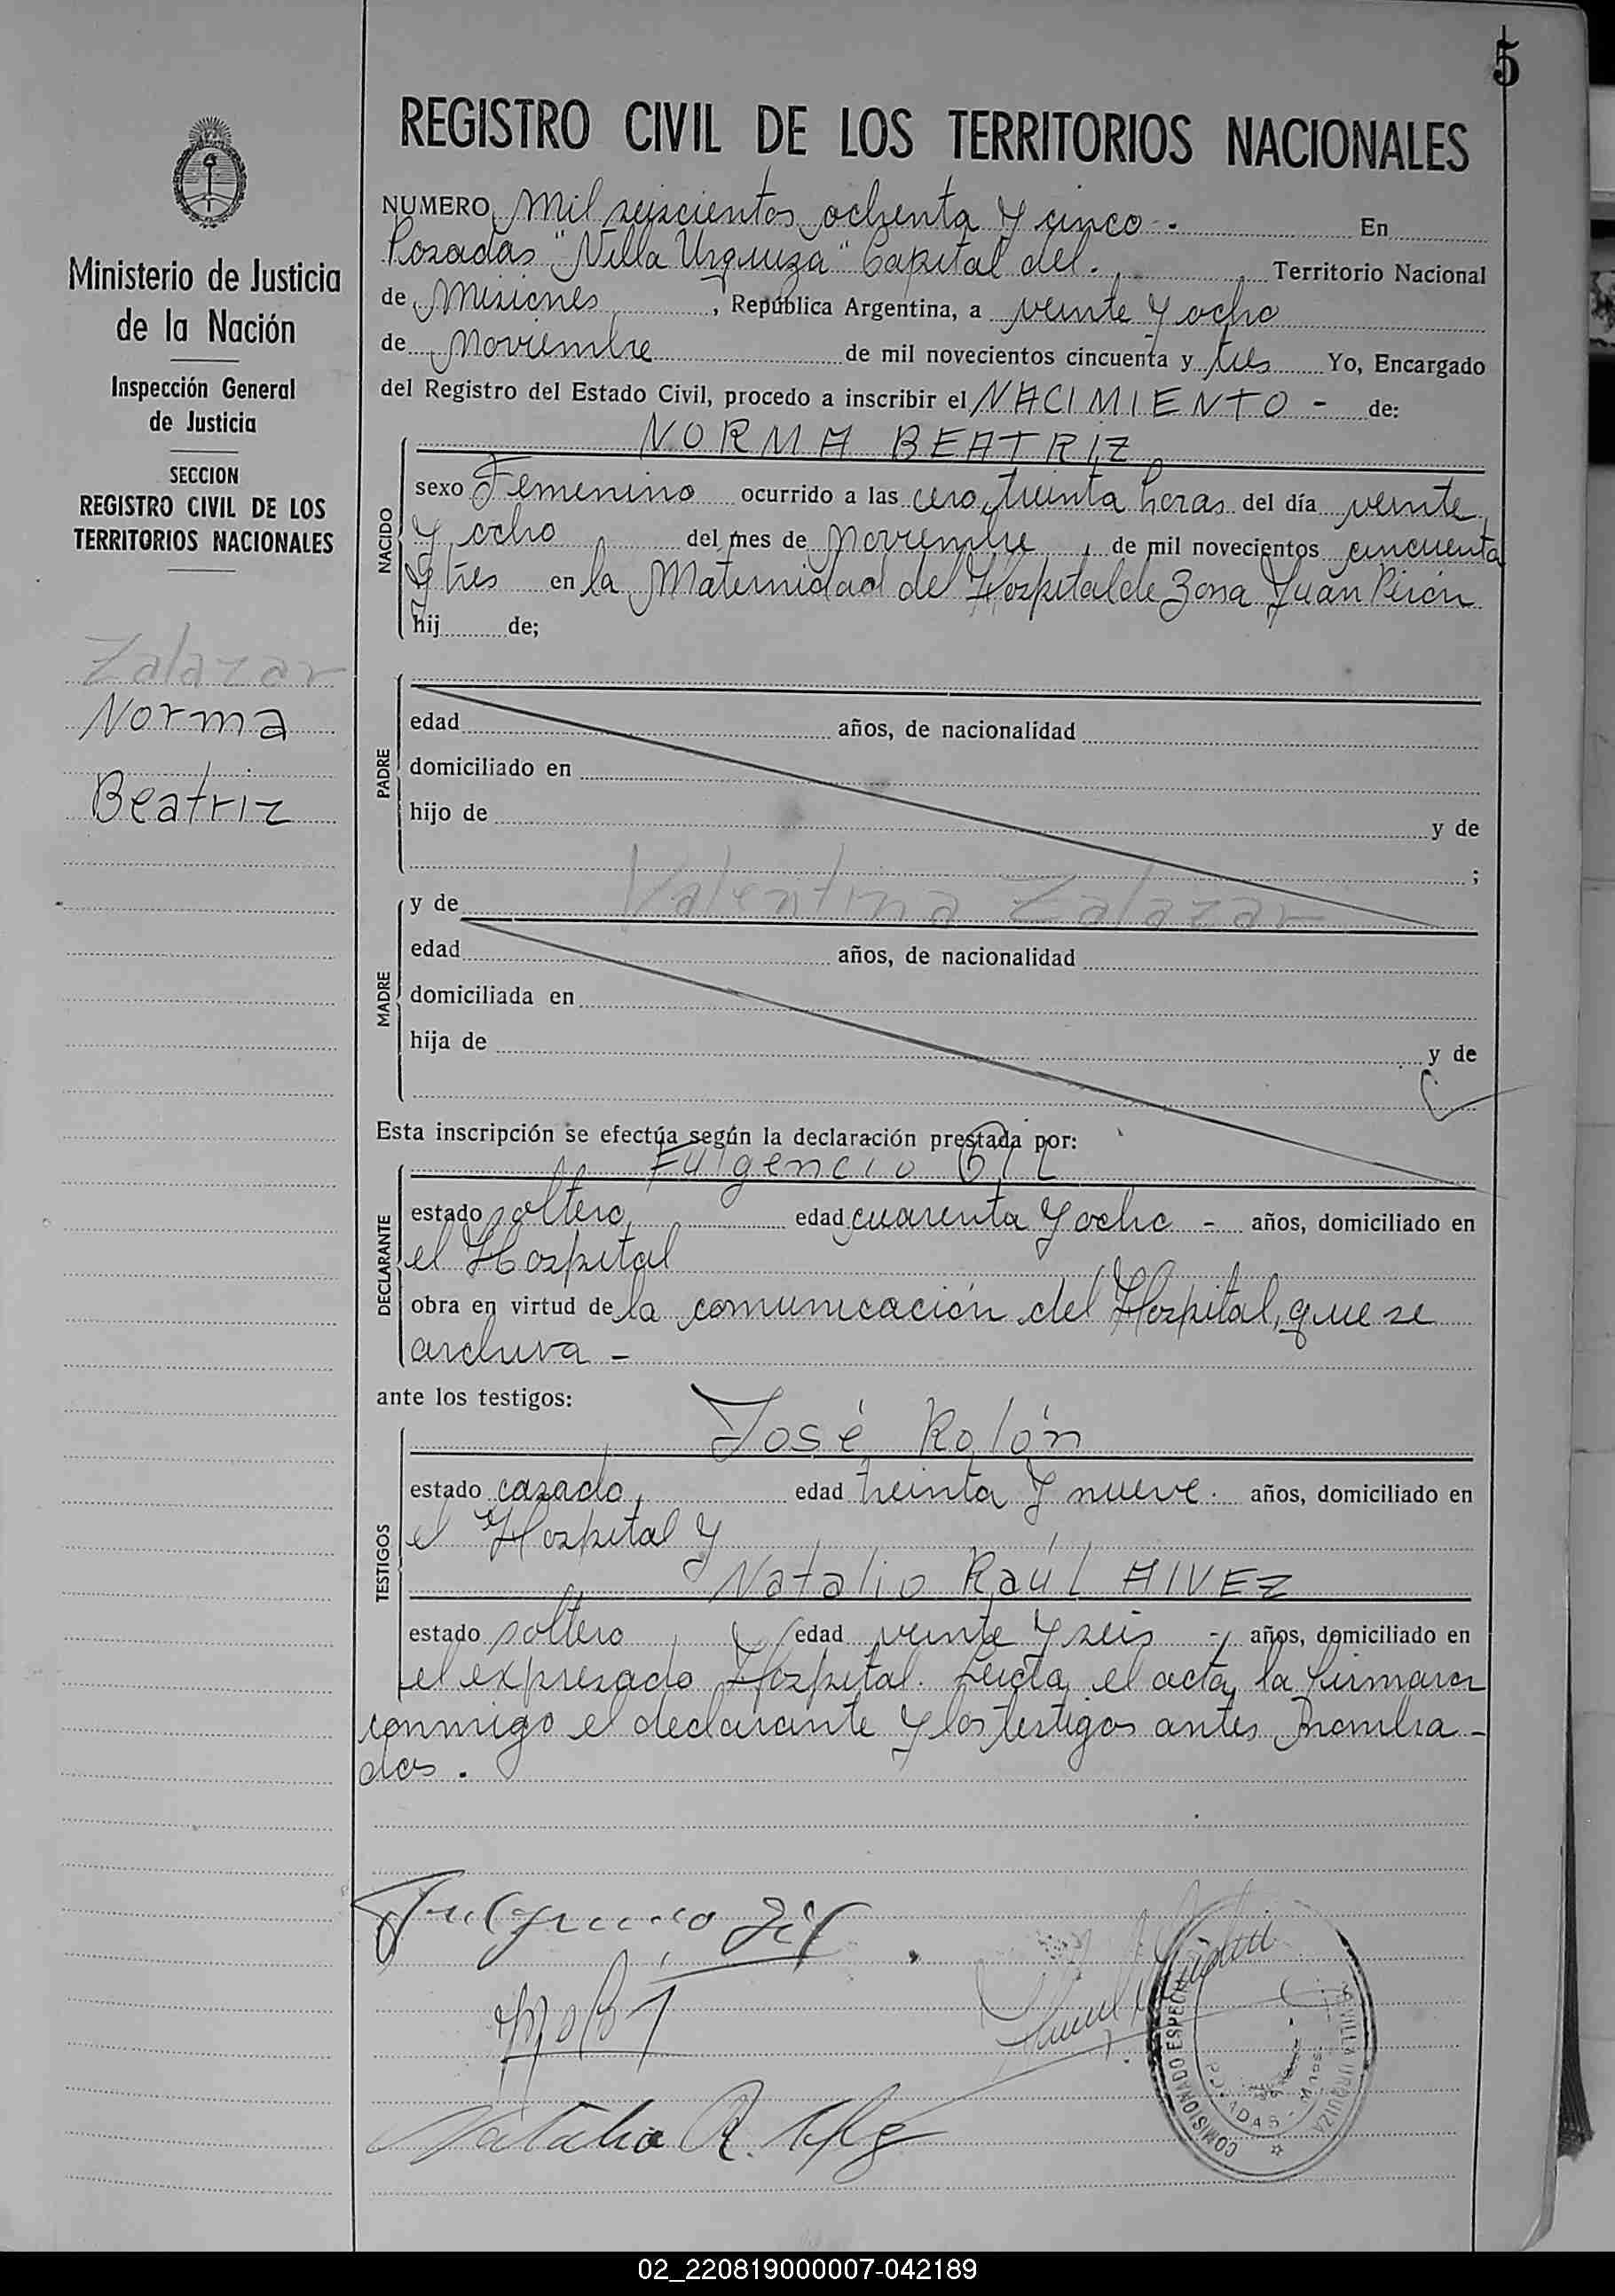 5
REGISTRO CIVIL DE LOS TERRITORIOS NACIONALES
Ministerio de Justicia
de la Nación
Inspección General
de Justicia
SECCION
REGISTRO CIVIL DE LOS
TERRITORIOS NACIONALES
Zalazar
Norma
Beatriz
NUMERO Mil seiscientos ochenta y cinco - En
Posadas "Villa Urquiza" Capital del. Territorio Nacional
de Misiones, República Argentina, a veinte y ocho
de Noviembre de mil novecientos cincuenta y tres Yo, Encargado
del Registro del Estado Civil, procedo a inscribir el NACIMIENTO - de:
NORMA BEATRIZ
NACIDO
sexo Femenino ocurrido a las cero, treinta horas del día veinte
y ocho del mes de Noviembre, de mil novecientos cincuenta
y tres en la Maternidad del Hospital de Zona Juan Perón
hij de;
PADRE
edad años, de nacionalidad
domiciliado en
hijo de y de
;
MADRE
y de Valentina Zalazar
edad años, de nacionalidad
domiciliada en
hija de y de
Esta inscripción se efectúa según la declaración prestada por:
Fulgencio Gil
DECLARANTE
estado soltero, edad cuarenta y ocho - años, domiciliado en
el Hospital
obra en virtud de la comunicación del Hospital, que se
archiva -
ante los testigos:
José Rolón
TESTIGOS
estado casado, edad treinta y nueve. años, domiciliado en
el Hospital y
Natalio Raúl AIVEZ
estado soltero, edad veinte y seis - años, domiciliado en
el expresado Hospital. Leída el acta, la firmaron
conmigo el declarante y los testigos antes nombra-
dos.
Fulgencio Gil
Natalio R.
COMISIONADO ESPECIAL
VILLA URQUIZA
POSADAS - Mnes.
02_220819000007-042189